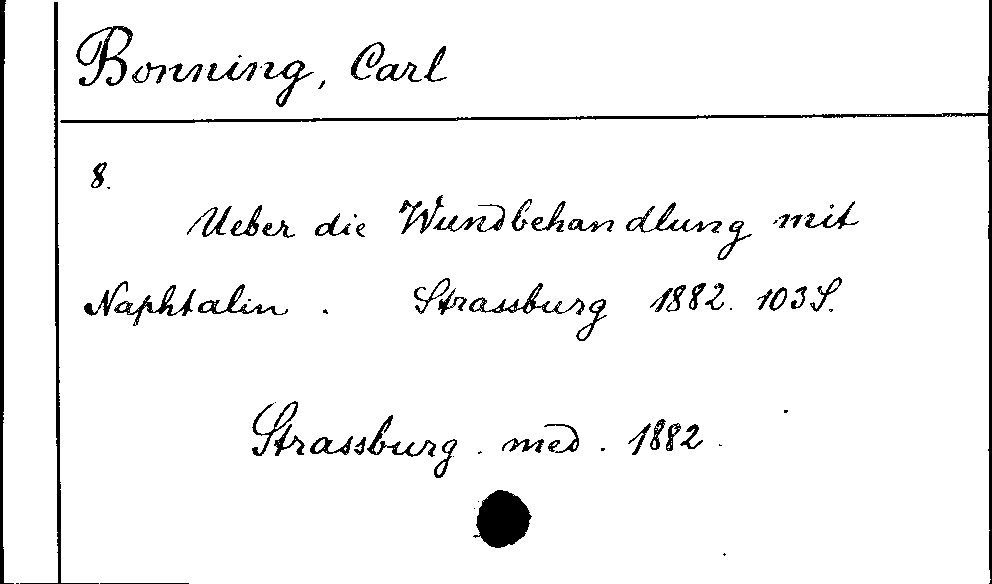 Bonning, Carl
8.
Ueber die Wundbehandlung mit
Naphtalin. Strassburg 1882. 103 S.
Strassburg. med. 1882.